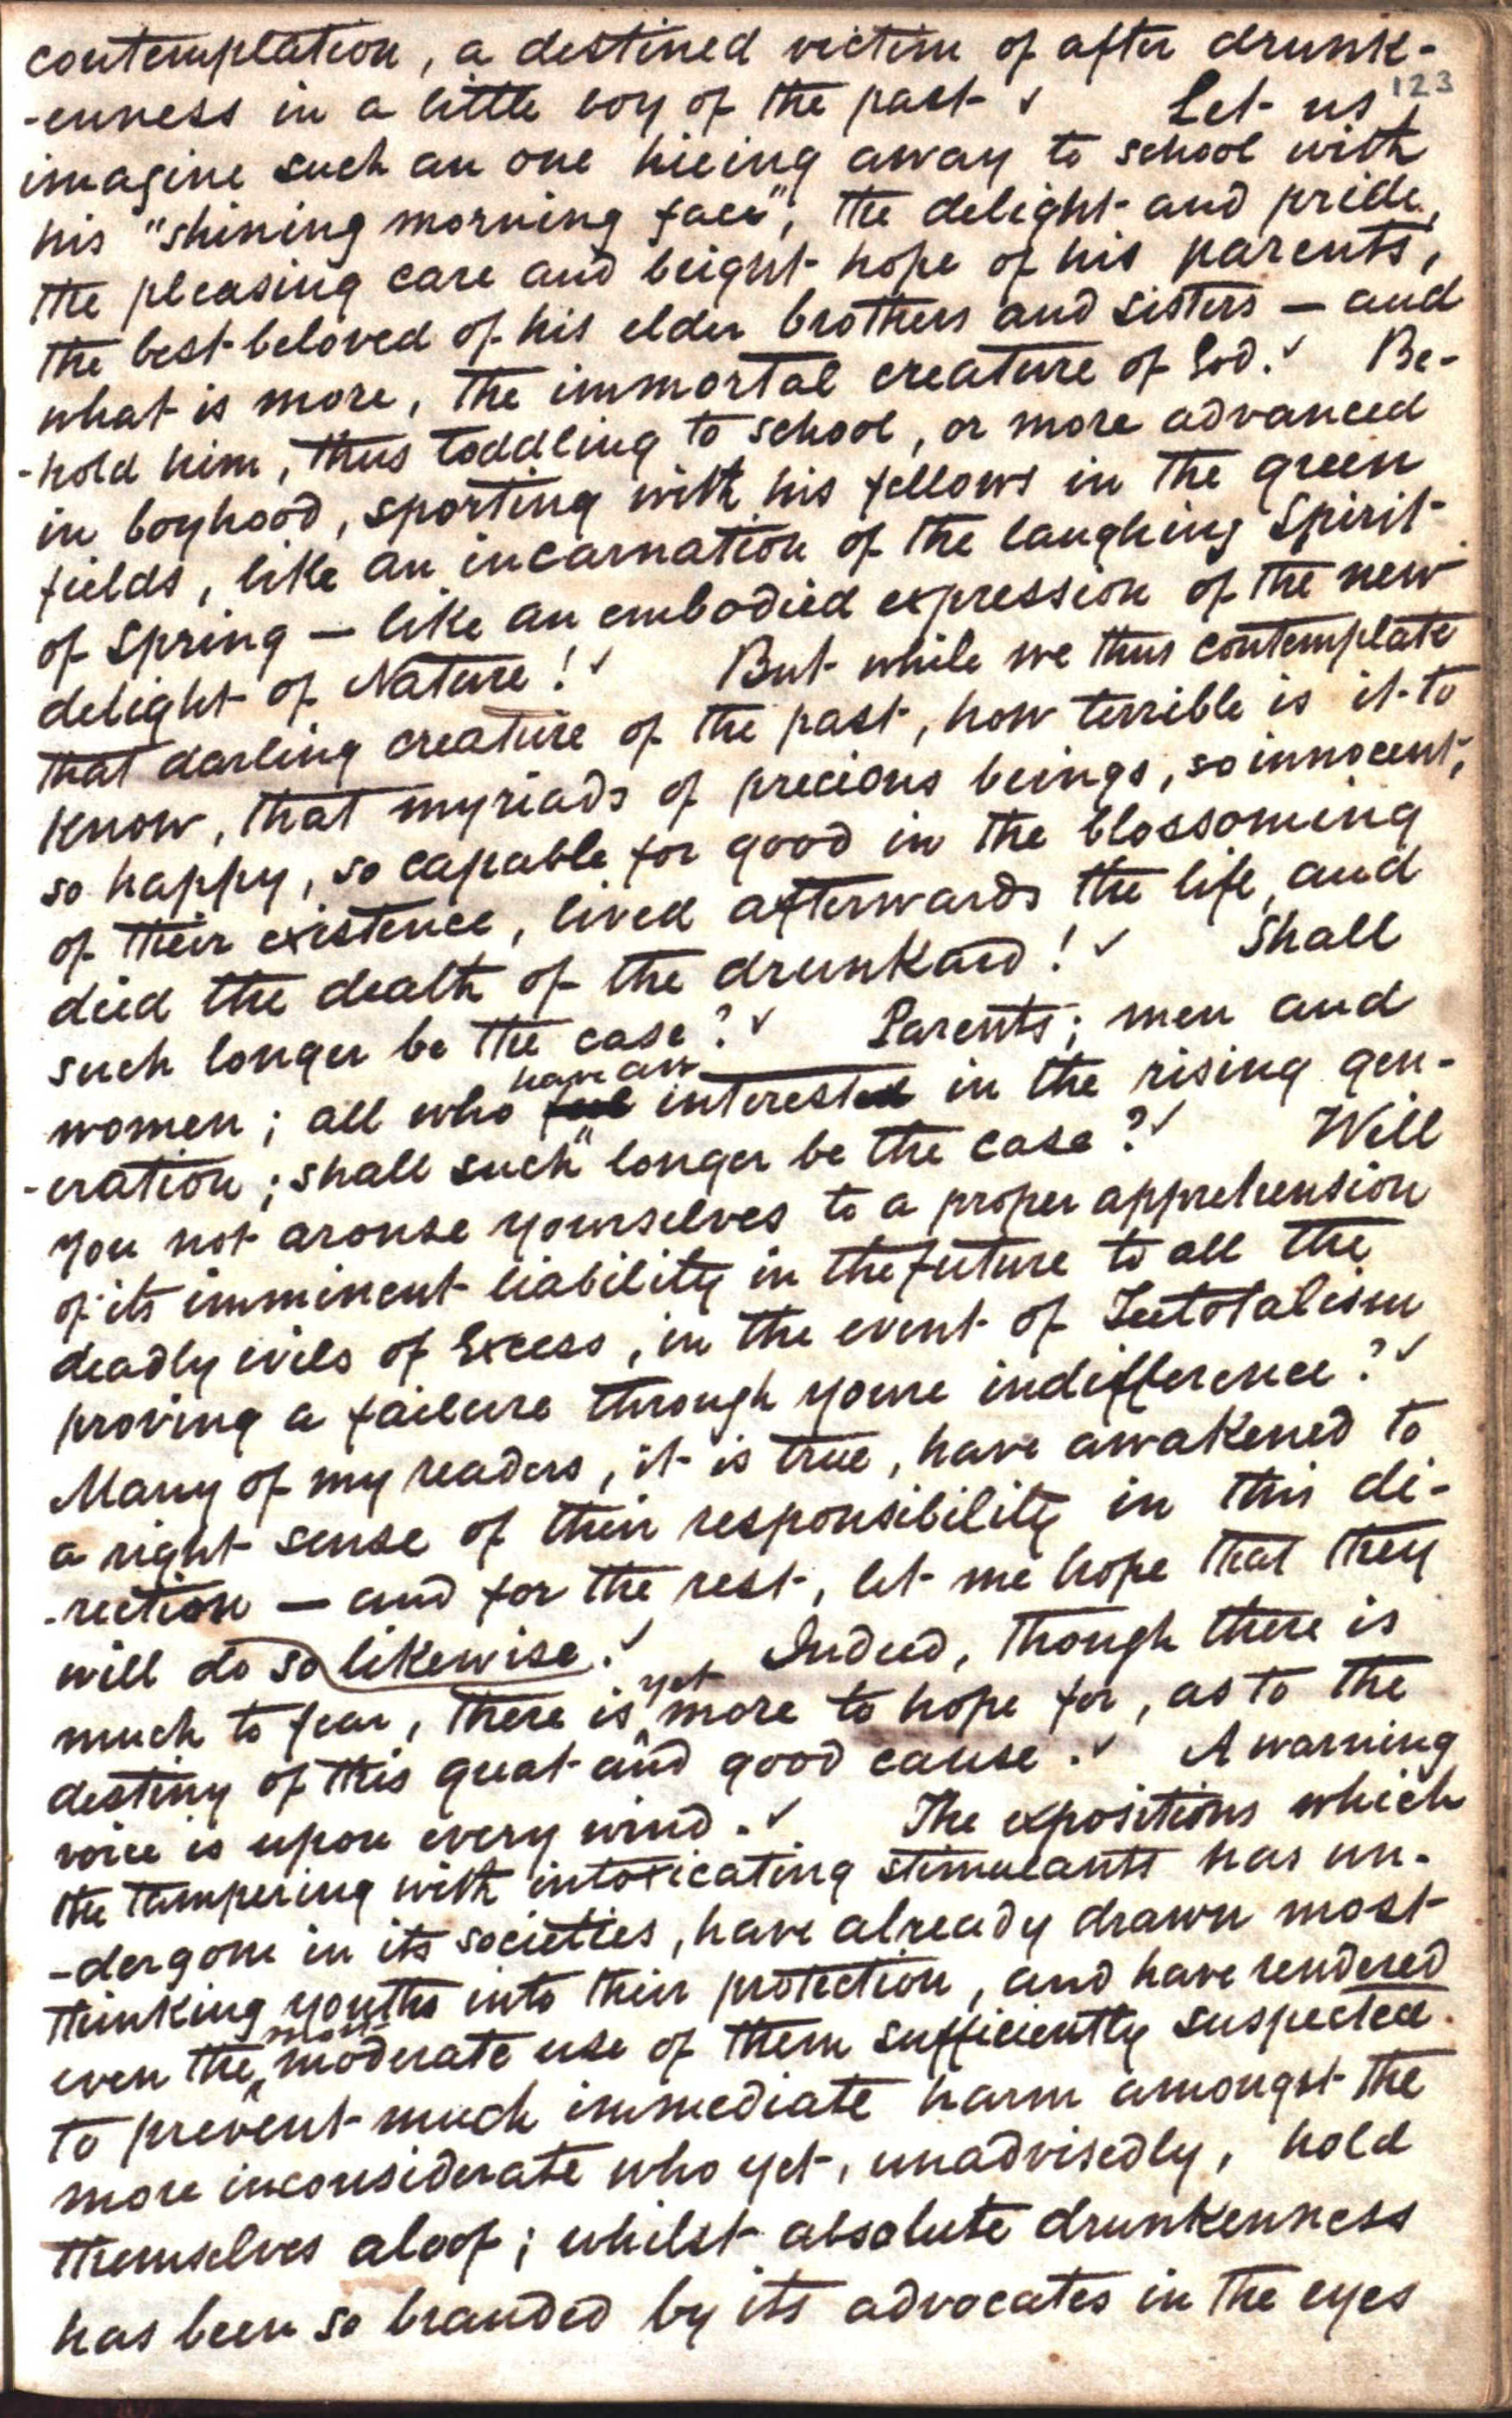 contemplation, a destined victim of after drunk-
123
-enness in a little boy of the past ✓ Let us
imagine such an one hieing away to school with
his "shining morning face", the delight and pride,
the pleasing care and bright hope of his parents,
the best-beloved of his elder brothers and sisters — and
what is more, the immortal creature of God. ✓ Be-
-hold him, thus toddling to school, or more advanced
in boyhood, sporting with his fellows in the green
fields, like an incarnation of the laughing Spirit
of Spring — like an embodied expression of the new
delight of Nature! ✓ But while we thus contemplate
that darling creature of the past, how terrible is it to
know, that myriads of precious beings, so innocent,
so happy, so capable for good in the blossoming
of their existence, lived afterwards the life, and
died the death of the drunkard! ✓ Shall
such longer be the case? ✓ Parents; men and
have an
women; all who feel interested in the rising gen-
-eration; shall "such" longer be the case? ✓ Will
you not arouse yourselves to a proper apprehension
of its imminent liability in the future to all the
deadly evils of Excess, in the event of Teetotalism
proving a failure through youre indifference? ✓
Many of my readers, it is true, have awakened to
a right sense of their responsibility in this di-
-rection — and for the rest, let me hope that they
will do so likewise. ✓ Indeed, though there is
yet
much to fear, there is more to hope for, as to the
destiny of this great and good cause. ✓ A warning
voice is upon every wind. ✓ The expositions which
the tampering with intoxicating stimulants has un-
-dergone in its societies, have already drawn most
thinking youths into their protection, and have rendered
most
even the moderate use of them sufficiently suspected
to prevent much immediate harm amongst the
more inconsiderate who yet, unadvisedly, hold
themselves aloof; whilst absolute drunkenness
has been so branded by its advocates in the eyes